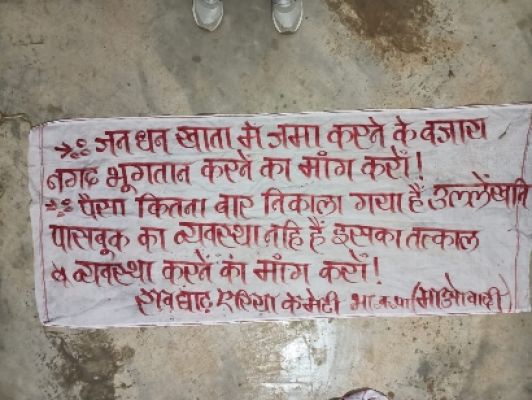 →ः जनधन खाता में जमा करने के बजाय
नगद भूगतान करने का मांग करों!
→ः पैसा कितना बार निकाला गया हैं उल्लेंखनि
पासबूक का व्यवस्था नहि हैं इसका तत्काल
व्यवस्था करने कां मांग करों!
एरिया कमेटी भाकपा (माओवादी)